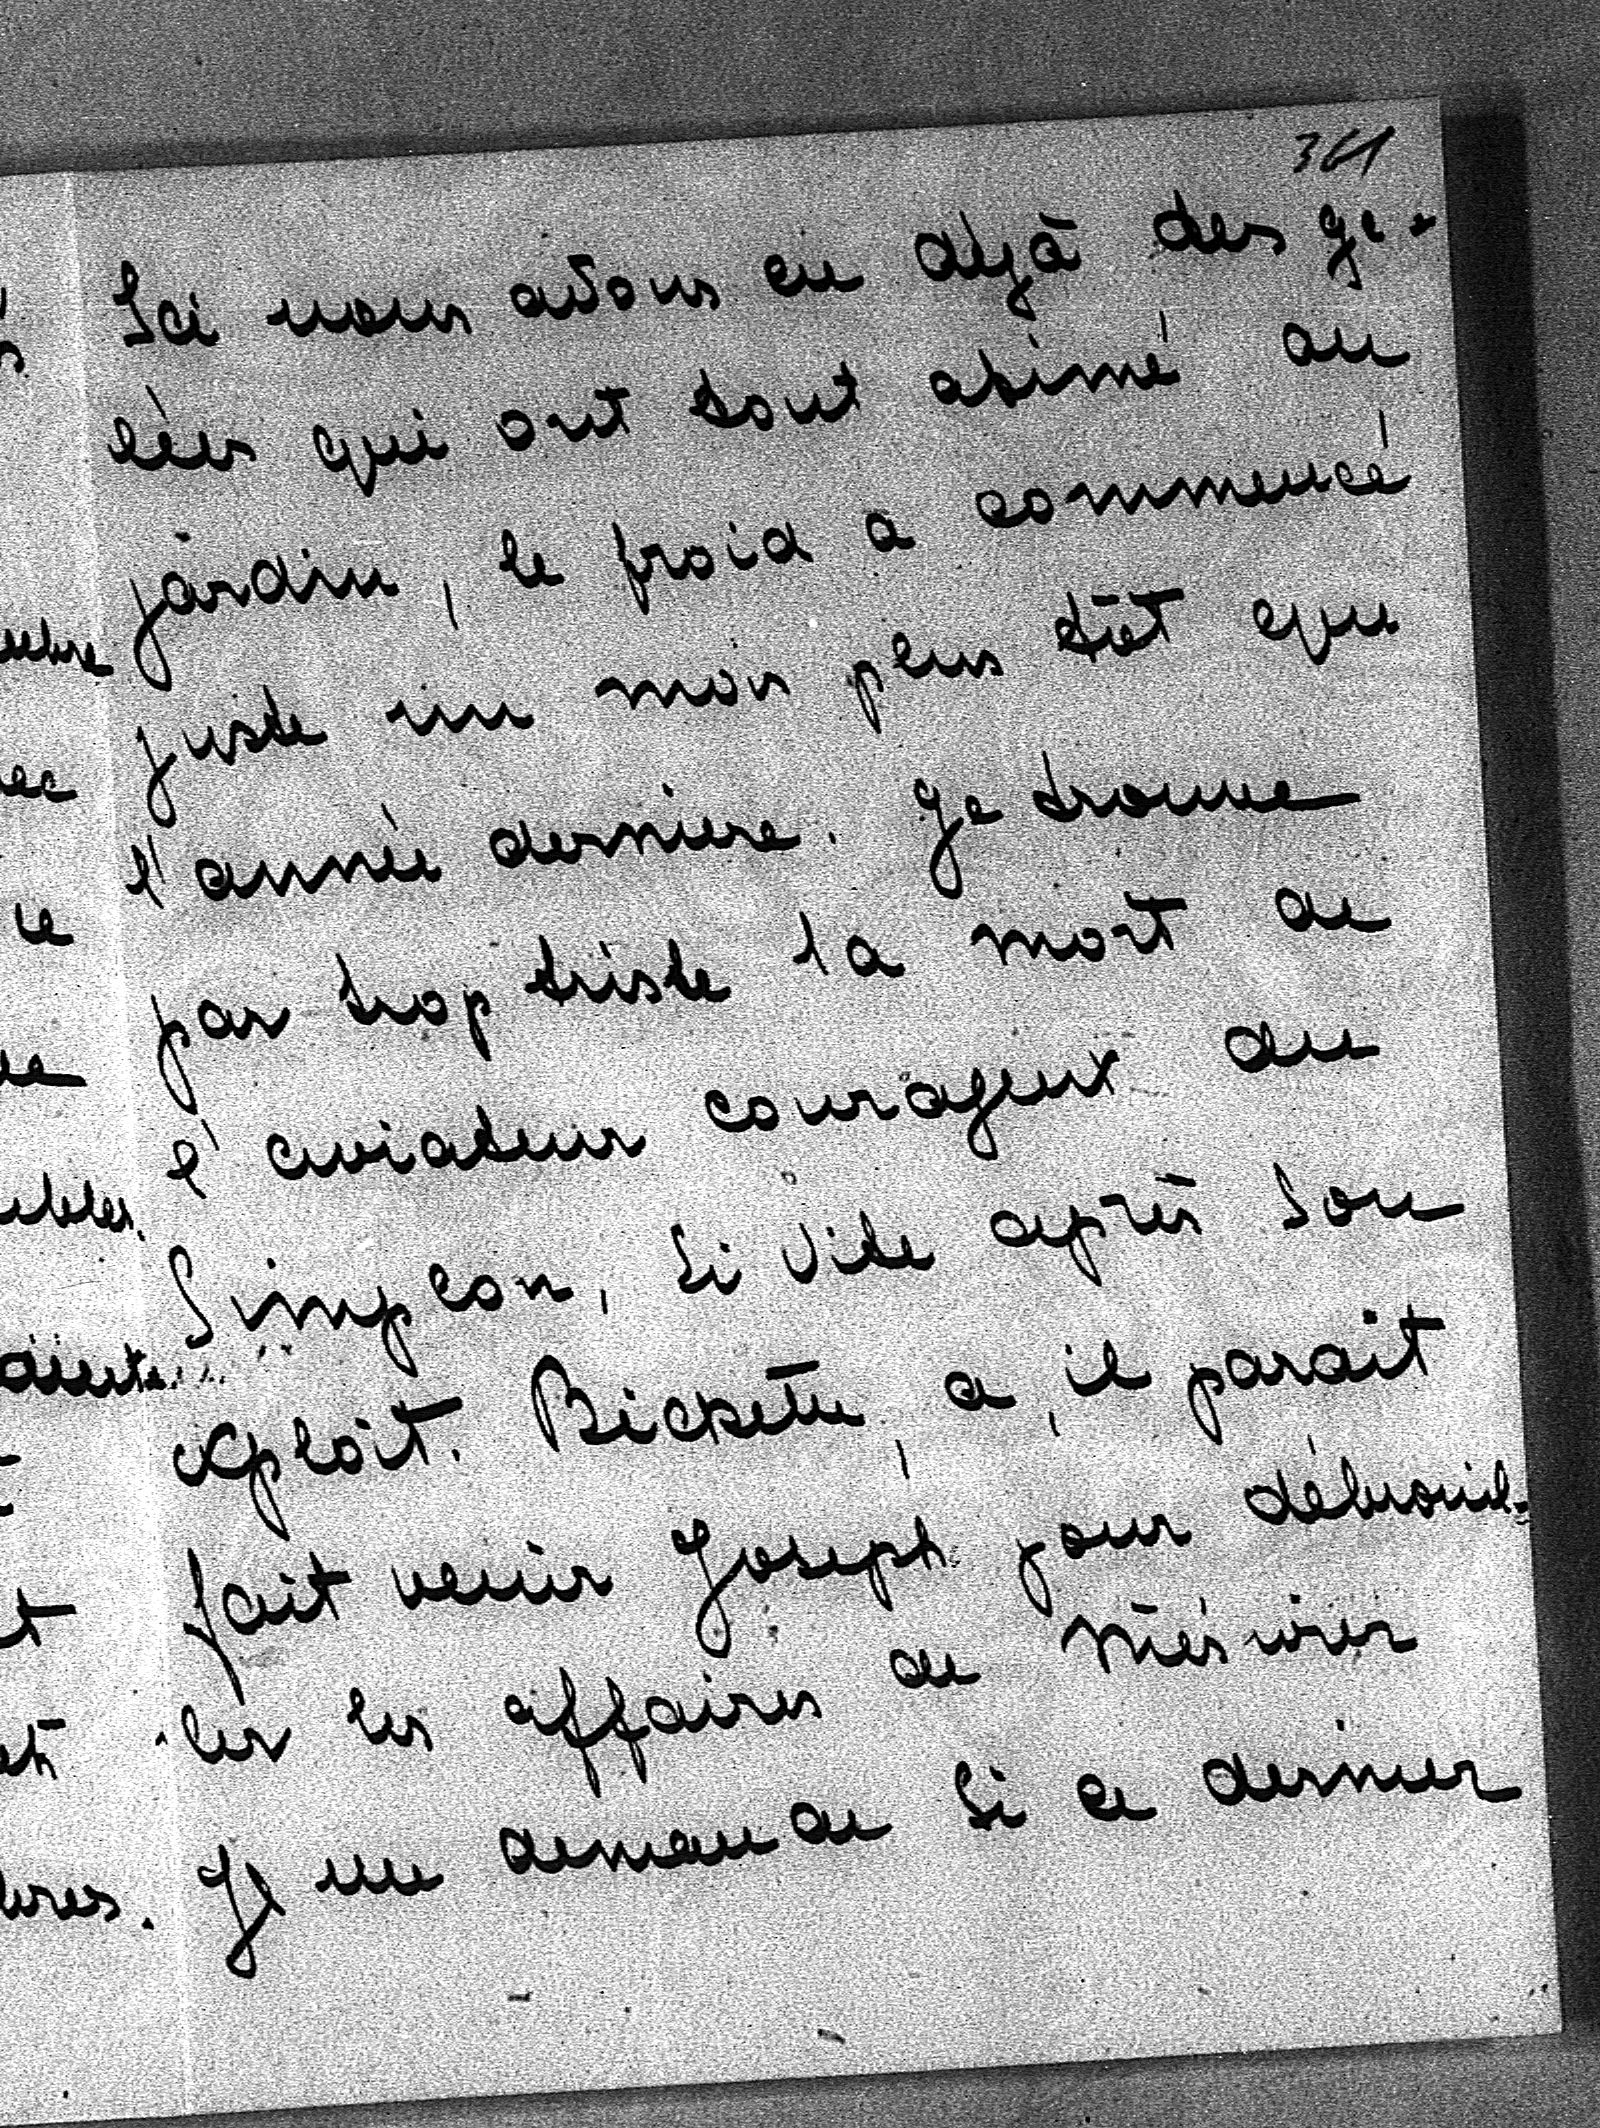 361
Ici nous avons eu déjà des ge-
lées qui ont tout abimé au
jardin, le froid a commencé
juste un mois plus tôt que
l'année derniere. Je trouve
par trop triste la mort de
l'aviateur courageux du
Simplon, si vite après son
exploit. Bickette, a, il parait
fait venir Joseph pour débrouil-
ler les affaires de
Je me demande si ce dernier